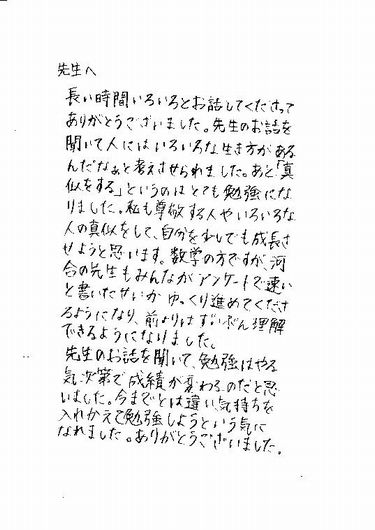 先生へ
長い時間いろいろとお話してくださって
ありがとうございました。先生のお話を
聞いて人にはいろいろな生き方がある
んだなぁと考えさせられました。あと「真
似をする」というのはとても勉強にな
りました。私も尊敬する人やいろいろな
人の真似をして、自分を少しでも成長さ
せようと思います。数学の方ですが、河
合の先生もみんながアンケートで速い
と書いたせいかゆっくり進めてくださ
るようになり、前よりはずいぶん理解
できるようになりました。
先生のお話を聞いて、勉強はやる
気次第で成績が変わるのだと思
いました。今までとは違い気持ちを
入れかえて勉強しようという気に
なれました。ありがとうございました。